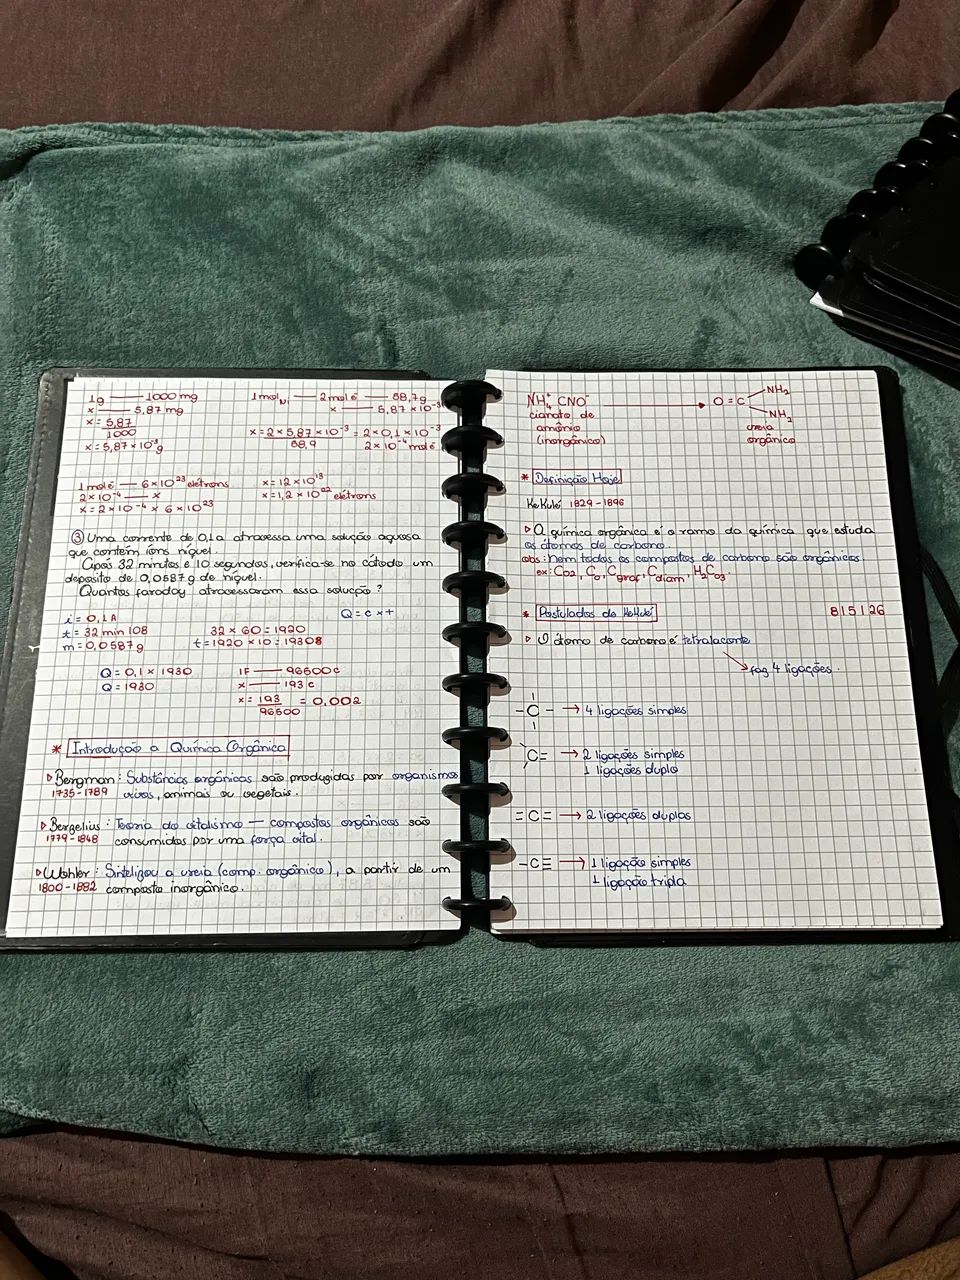 1g — 1000 mg
x — 5,87 mg
x = 5,87
1000
x = 5,87 x 10⁻³ g
1 mol Ni — 2 mol é — 58,7g
x — 5,87 x 10⁻³
x = 2 x 5,87 x 10⁻³ = 2 x 0,1 x 10⁻³
58,9 2 x 10⁻⁴ mol é
1 mol é — 6 x 10²³ elétrons
2 x 10⁻⁴ — x
x = 2 x 10⁻⁴ x 6 x 10²³
x = 12 x 10¹³
x = 1,2 x 10²² elétrons
③ Uma corrente de 0,1a atravessa uma solução aquosa
que contém íons níquel.
Após 32 minutos e 10 segundos, verifica-se no cátodo um
deposito de 0,0587 g de níquel.
Quantos faraday atravessaram essa solução?
Q = c x t
i = 0,1A
t = 32 min 10s
m = 0,0587 g
32 x 60 = 1920
t = 1920 x 10 = 1930s
Q = 0,1 x 1930
Q = 1930
1F — 96500 c
x — 193 c
x = 193 = 0,002
96500
* Introdução a Química Orgânica
▷ Bergman: Substâncias orgânicas são produzidas por organismos
1735 - 1789 vivos, animais ou vegetais.
▷ Berzelius: Teoria do vitalismo — compostos orgânicos são
1779 - 1848 consumidos por uma força vital.
▷ Wohler: Sintetizou a ureia (comp. orgânico), a partir de um
1800 - 1882 composto inorgânico.
NH₄⁺ CNO⁻ → O = C NH₂
NH₂
cianato de
amônio
(inorgânico)
ureia
orgânico
* Definição Hoje
Kekulé 1829 - 1896
▷ A química orgânica é o ramo da química que estuda
os átomos de carbono.
obs: nem todos os compostos de carbono são orgânicos
ex: CO2, CO, Cgraf, Cdiam, H2CO3.
* Postulados de Kekulé 8|5|26
▷ O átomo de carbono é tetralacante
↘ faz 4 ligações.
– C – → 4 ligações simples
C = → 2 ligações simples
1 ligação dupla
= C = → 2 ligações duplas
– C ≡ → 1 ligação simples
1 ligação tripla